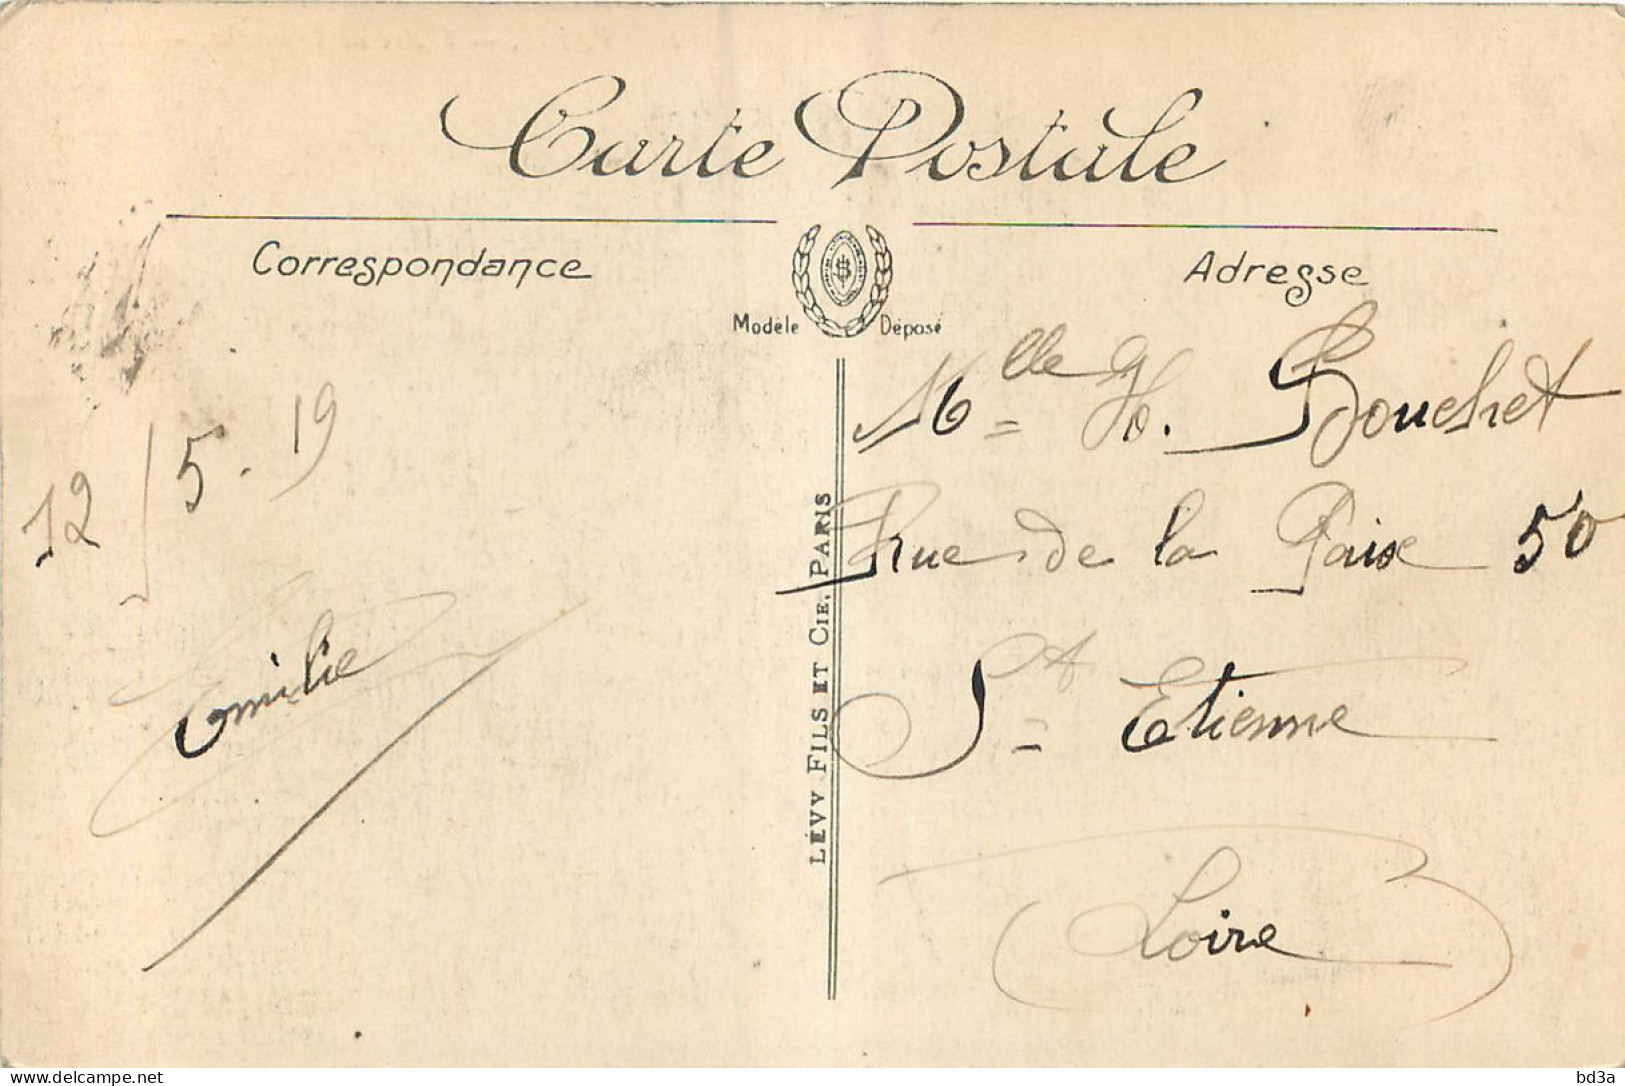 Carte Postale
Correspondance
Modèle Déposé
Adresse
12/5.19
Emilie
LÉVY FILS ET CIE, PARIS
Mlle H. Bouchet
Rue de la Paix 50
St Etienne
Loire
delcampe.net
bd3a